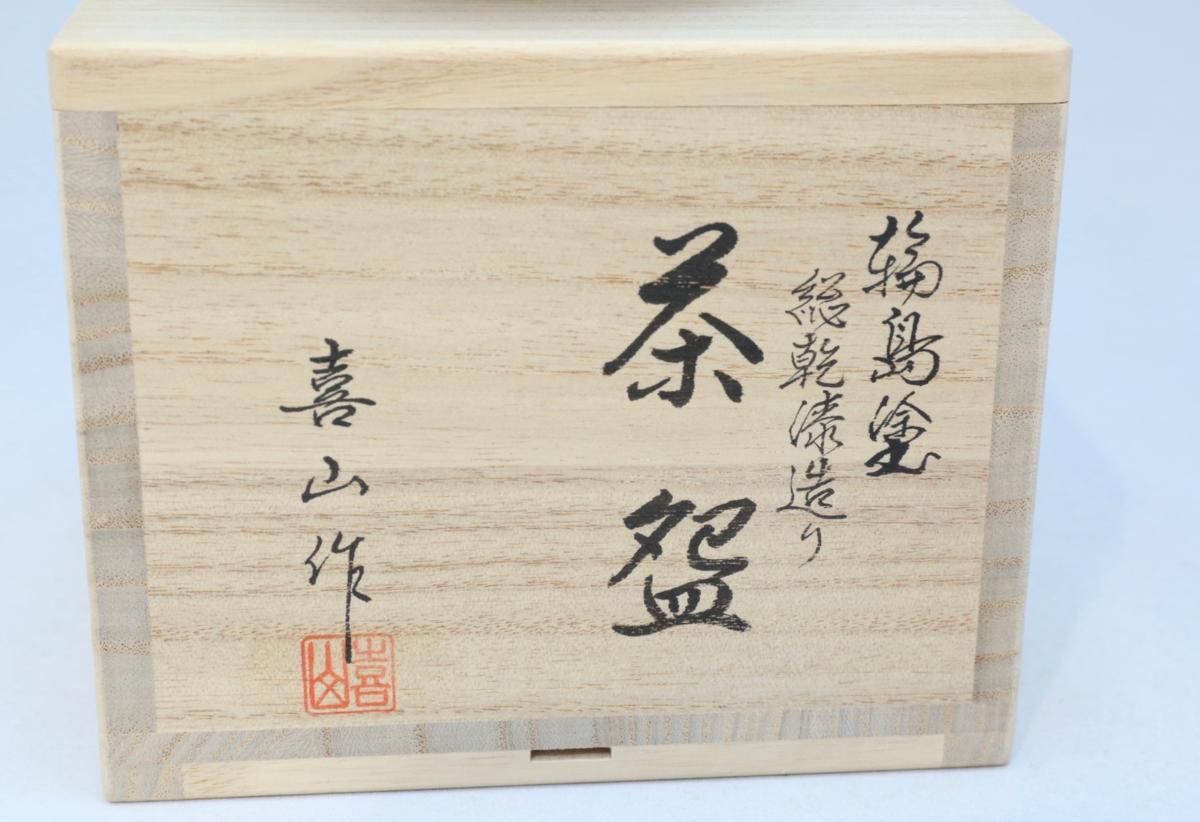 輪島塗
総乾漆造り
茶盌
喜山作
喜山